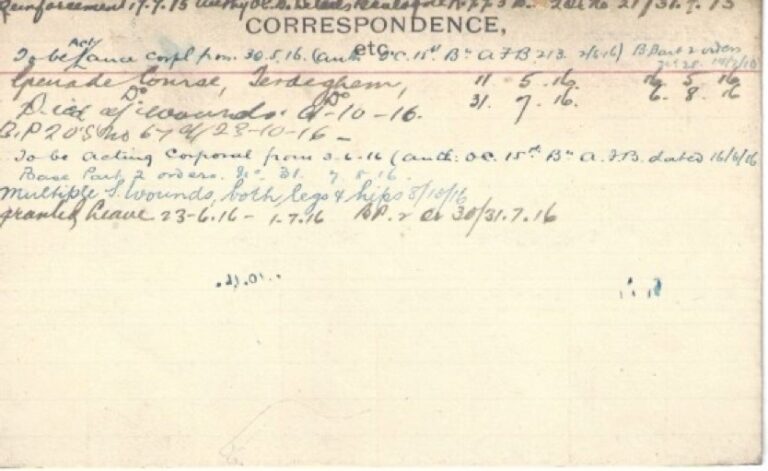 Reinforcement 17.7.15 21/31.7.15
CORRESPONDENCE,
etc.
To be Act/ Lance Corpl from 30.5.16. (Auth: O.C. 15th Bn A.F.B 213. 2/6/16) B Part 2 orders
Grenade Course, Terdeghem, 11 5 .16. 16 5 16
Do Do 31. 7 .16. 6. 8. 16
Died of wounds. -10-16.
B.P 20's No 67 d/23-10-16 -
To be Acting Corporal from 3-6-16 (auth: O.C. 15th Bn A.F.B. dated 16/6/16
Base Part 2 orders. No. 31. 7.8.16.
Multiple S. Wounds, both legs & hips 8/10/16
granted Leave 23-6.16 - 1.7.16 B.P. 2 30/31.7.16